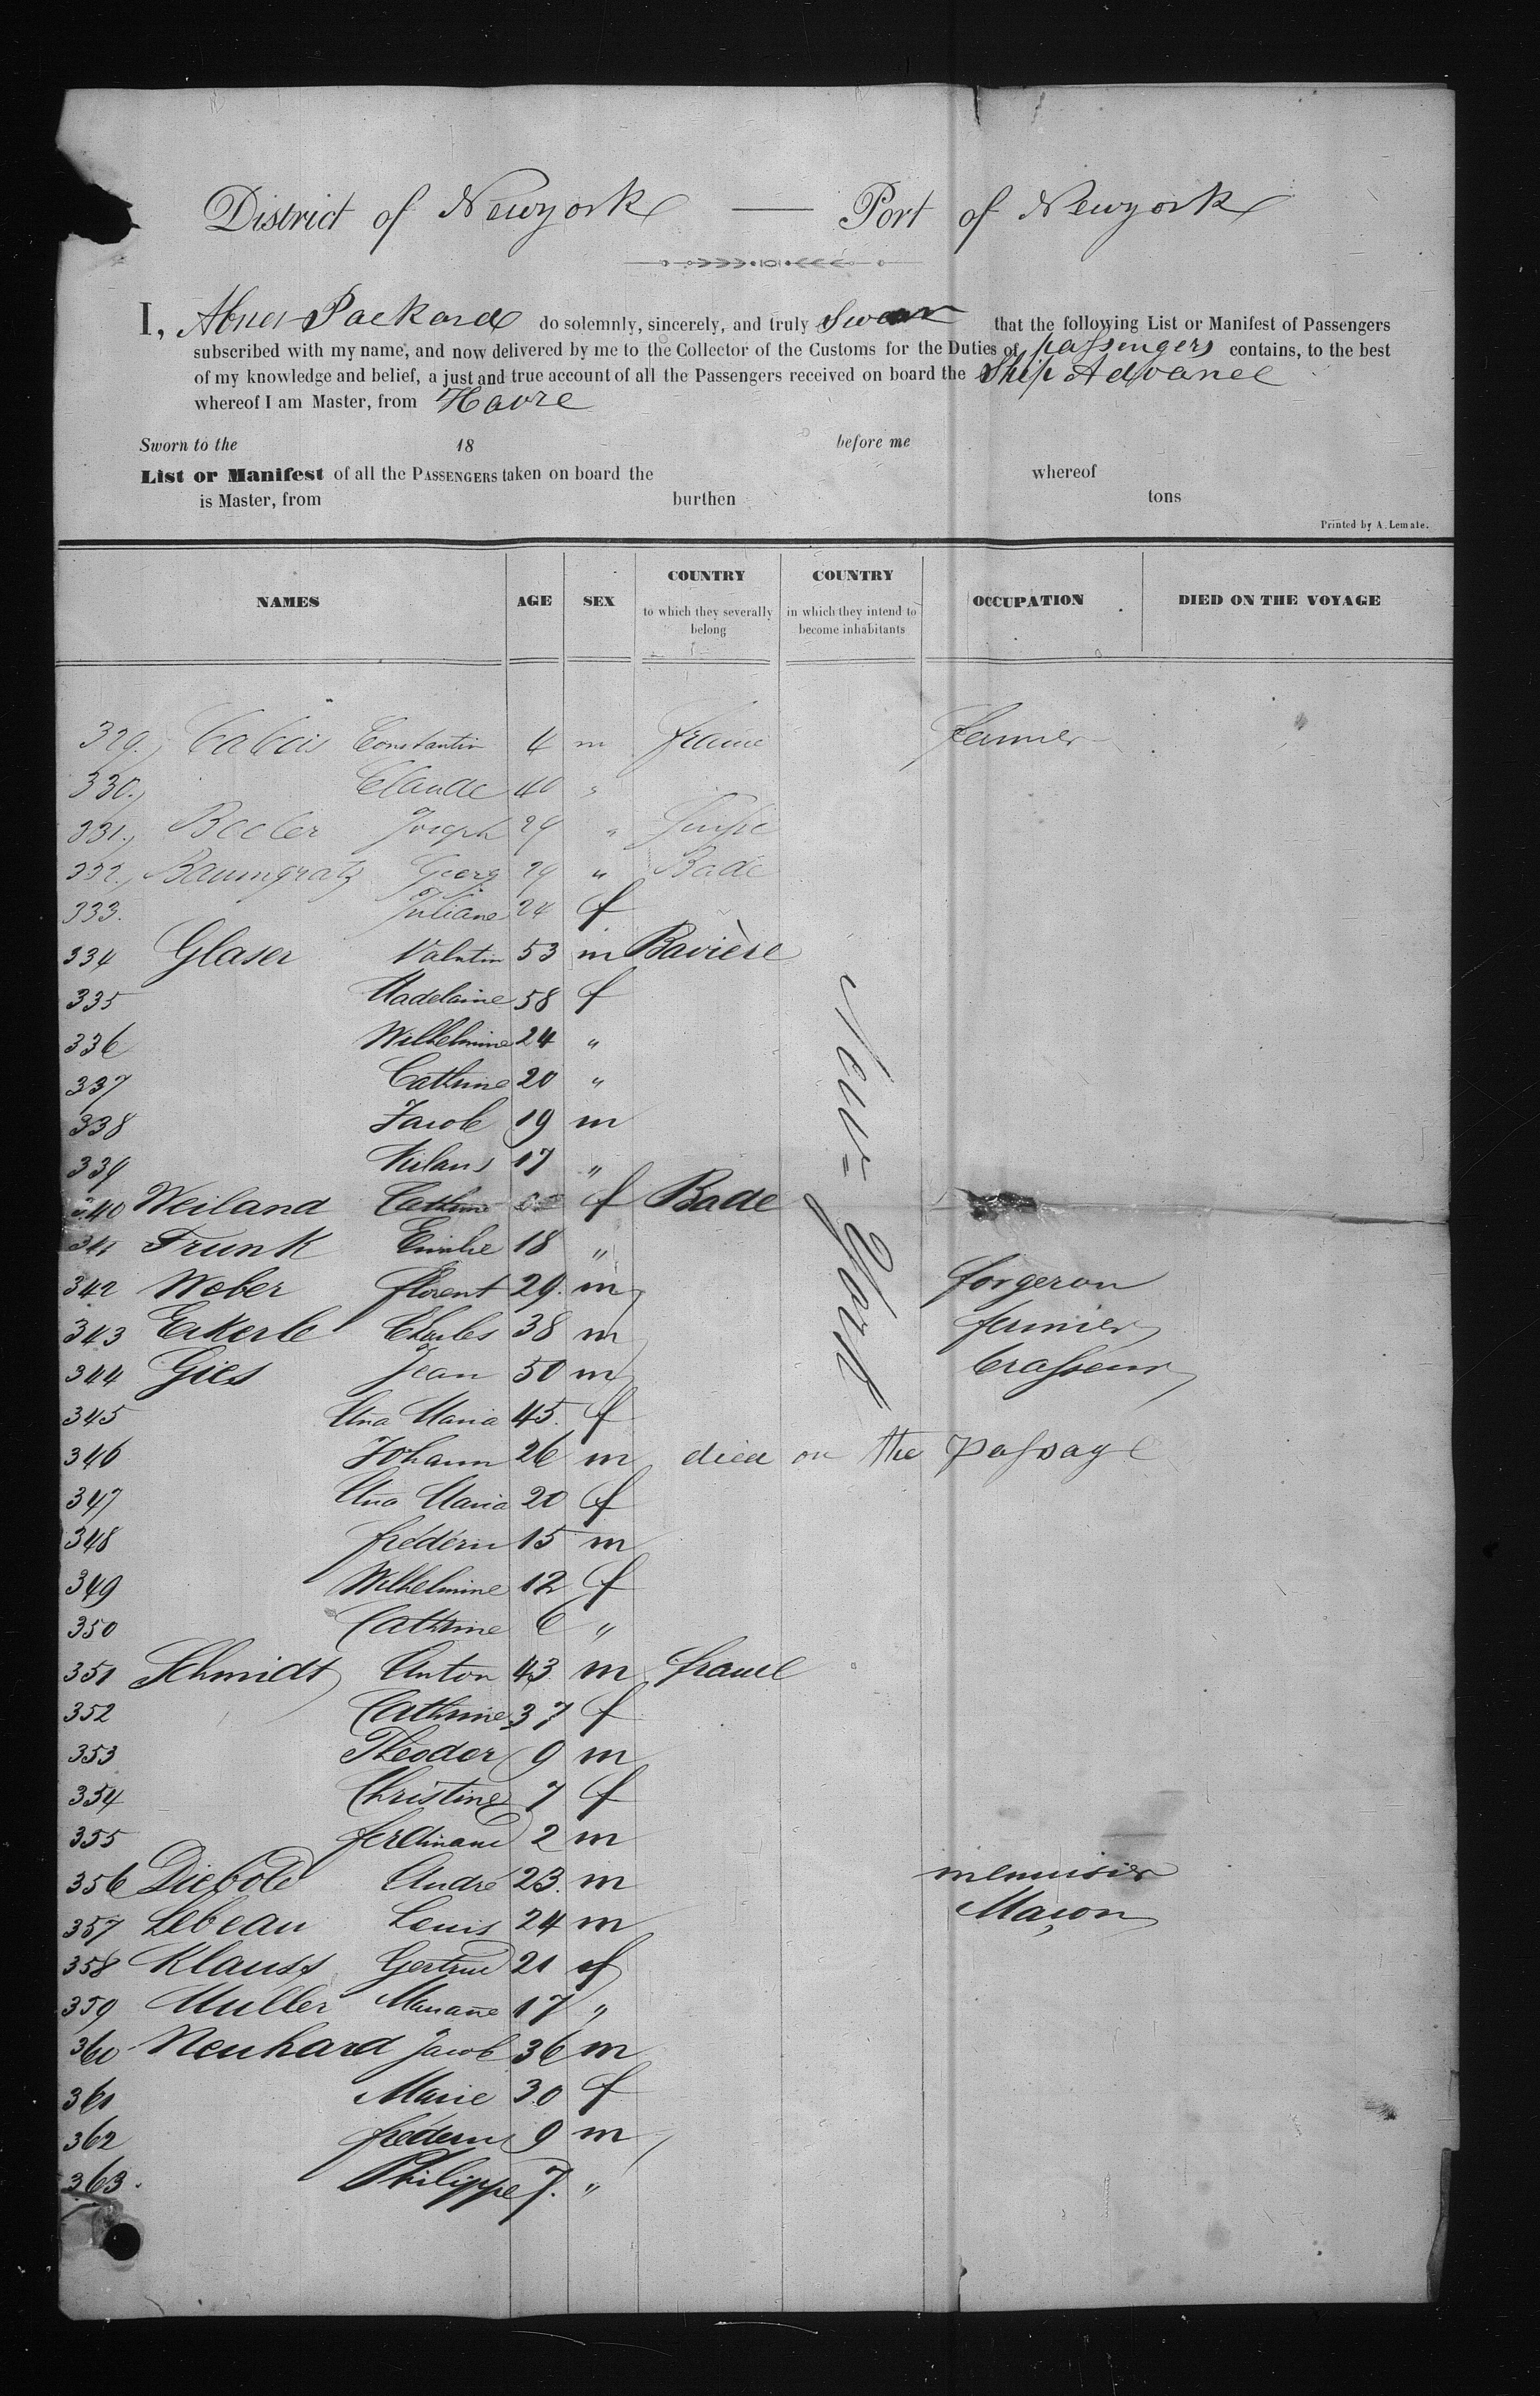 District of Newyork — Port of Newyork
I, Abner Packard do solemnly, sincerely, and truly Swear that the following List or Manifest of Passengers
subscribed with my name, and now delivered by me to the Collector of the Customs for the Duties of passengers contains, to the best
of my knowledge and belief, a just and true account of all the Passengers received on board the Ship Advance
whereof I am Master, from Havre
Sworn to the 18 before me
List or Manifest of all the PASSENGERS taken on board the whereof
is Master, from burthen tons
Printed by A. Lemale.
NAMES AGE SEX COUNTRY to which they severally belong COUNTRY in which they intend to become inhabitants OCCUPATION DIED ON THE VOYAGE
329. Constantin 4 m france
330. Claude 40 "
331. Joseph 29 "
332. Baumgratz Georg 29 " Bade
333. Juliane 24 f
334 Glaser Valntin 53 m Bavière
335 Madelaine 58 f
336 Wilhelmine 24 "
337 Cathrine 20 "
338 Jacob 19 m
339 17 "
340 Weiland Cathrine f Bade
341 Trunk Emilie 18 "
342 Weber florent 29. m forgeron
343 Eckerle Charles 38 m fermier
344 Gies Jean 50 m brasseur
345 Ana Maria 45. f
346 Johann 26 m died on the passage
347 Ana Maria 20 f
348 fréderic 15 m
349 Wilhelmine 12 f
350 Cathrine 6 "
351 Schmidt Anton 43 m france
352 Cathrine 37 f
353 Theodor 9 m
354 Christine 7 f
355 ferdinand 2 m
356 Diebold André 23. m menuisier
357 Lebeau Louis 24 m Maçon
358 Klauss Gertrud 21 f
359 Muller Mariane 17 "
360 Neuhard Jacob 36 m
361 Marie 30 f
362 fréderic 9 m
363. Philippe 7. "
New-York